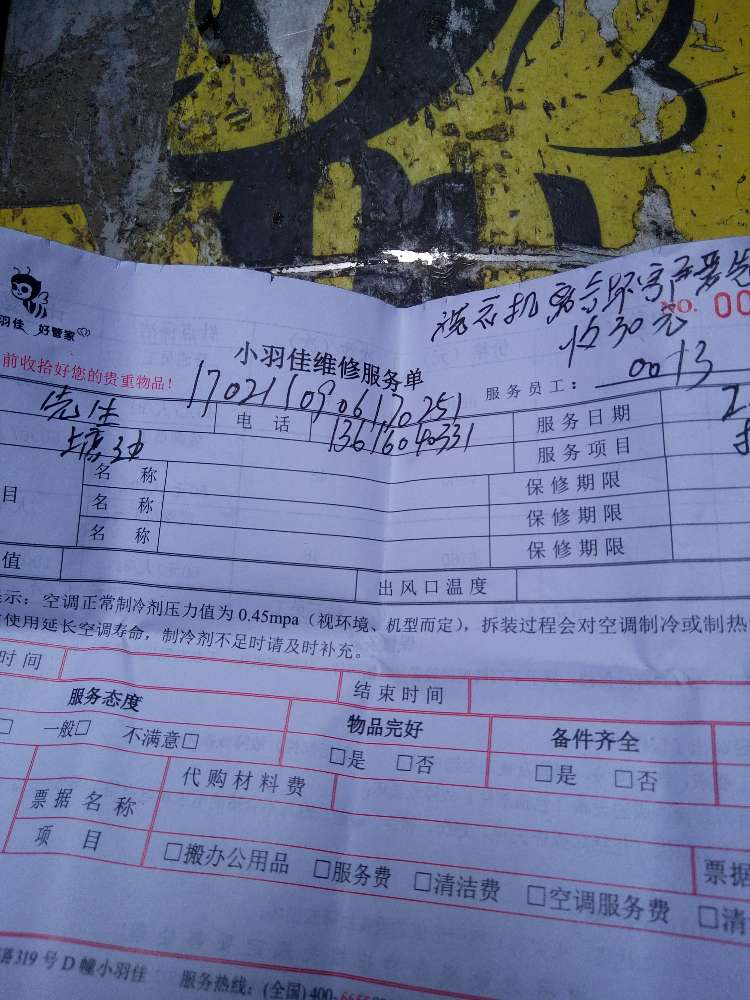 洗衣机
收30元
NO. 00
羽佳 好管家
小羽佳维修服务单
前收拾好您的贵重物品!
服务员工: 0013
1702110906170251
先生 电话 13616040331 服务日期
服务项目
目 名称 保修期限
名称 保修期限
名称 保修期限
值 出风口温度
示:空调正常制冷剂压力值为0.45mpa(视环境、机型而定),拆装过程会对空调制冷或制热
使用延长空调寿命,制冷剂不足时请及时补充。
时间 结束时间
服务态度 物品完好 备件齐全
□ 一般□ 不满意□ □是 □否 □是 □否
代购材料费
票据名称 票据
项目 □搬办公用品 □服务费 □清洁费 □空调服务费 □清
路319号D幢小羽佳 服务热线:(全国)400-